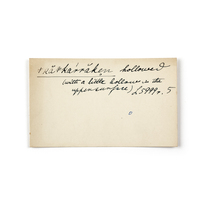 hollowed
(with a little hollow in the
upper surface) L5999v. 5